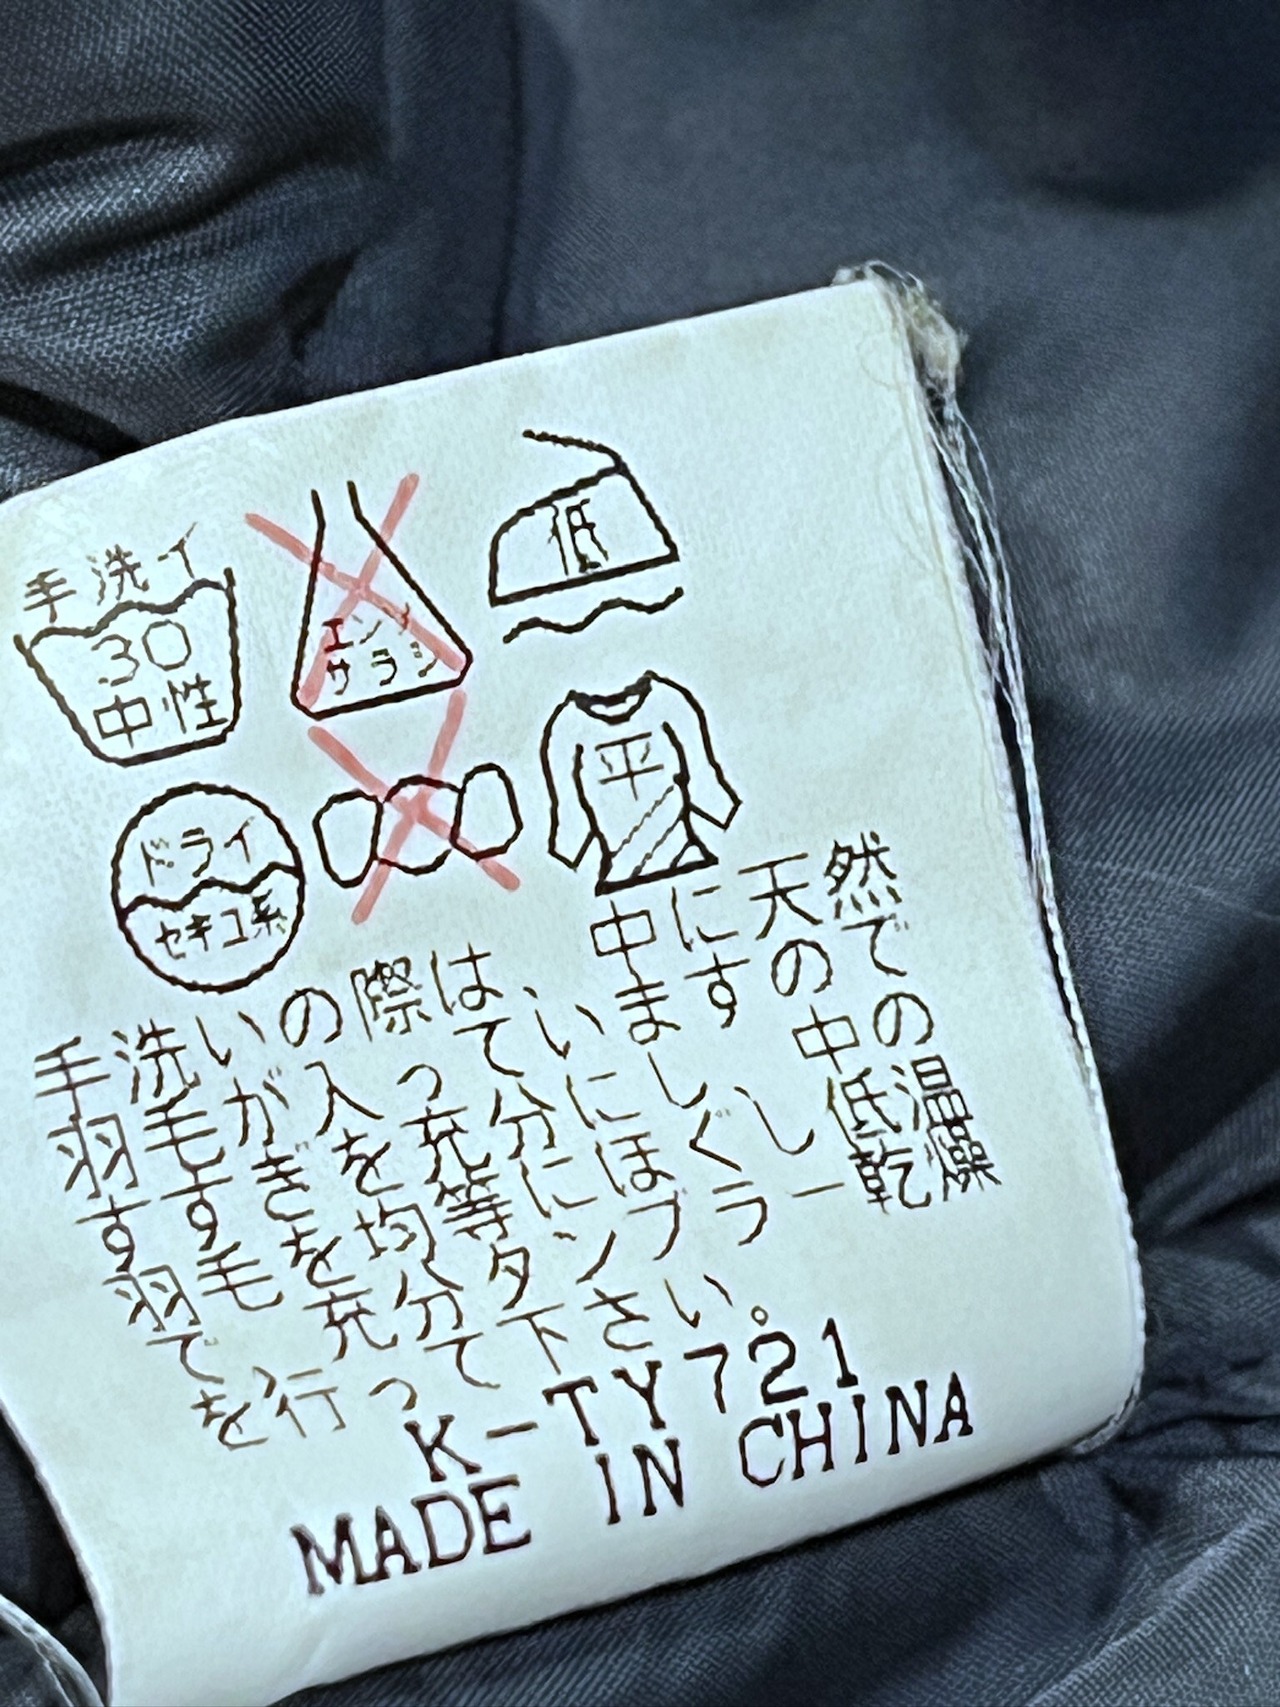 手洗イ
30
中性
エンソ
サラシ
低
ドライ
セキユ系
平
手洗いの際は、中に天然
羽毛が入っていますので
すすぎを充分にし中の
羽毛を均等にほぐし低温
で充分タンブラー乾燥
を行って下さい。
K-TY721
MADE IN CHINA